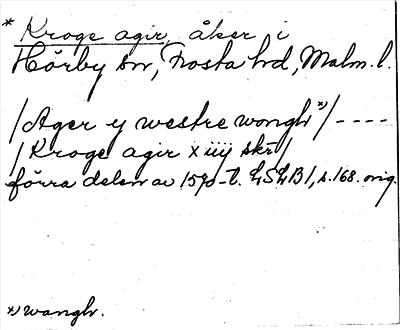 * Kroge agir, åker i
Hörby sn, Frosta hd, Malm. l.
/Ager y westre wongh x)/ ----
/Kroge agir x iiij skr/
förra delen av 1570-t. LSLB 1, s. 168. orig.
x) wangh.